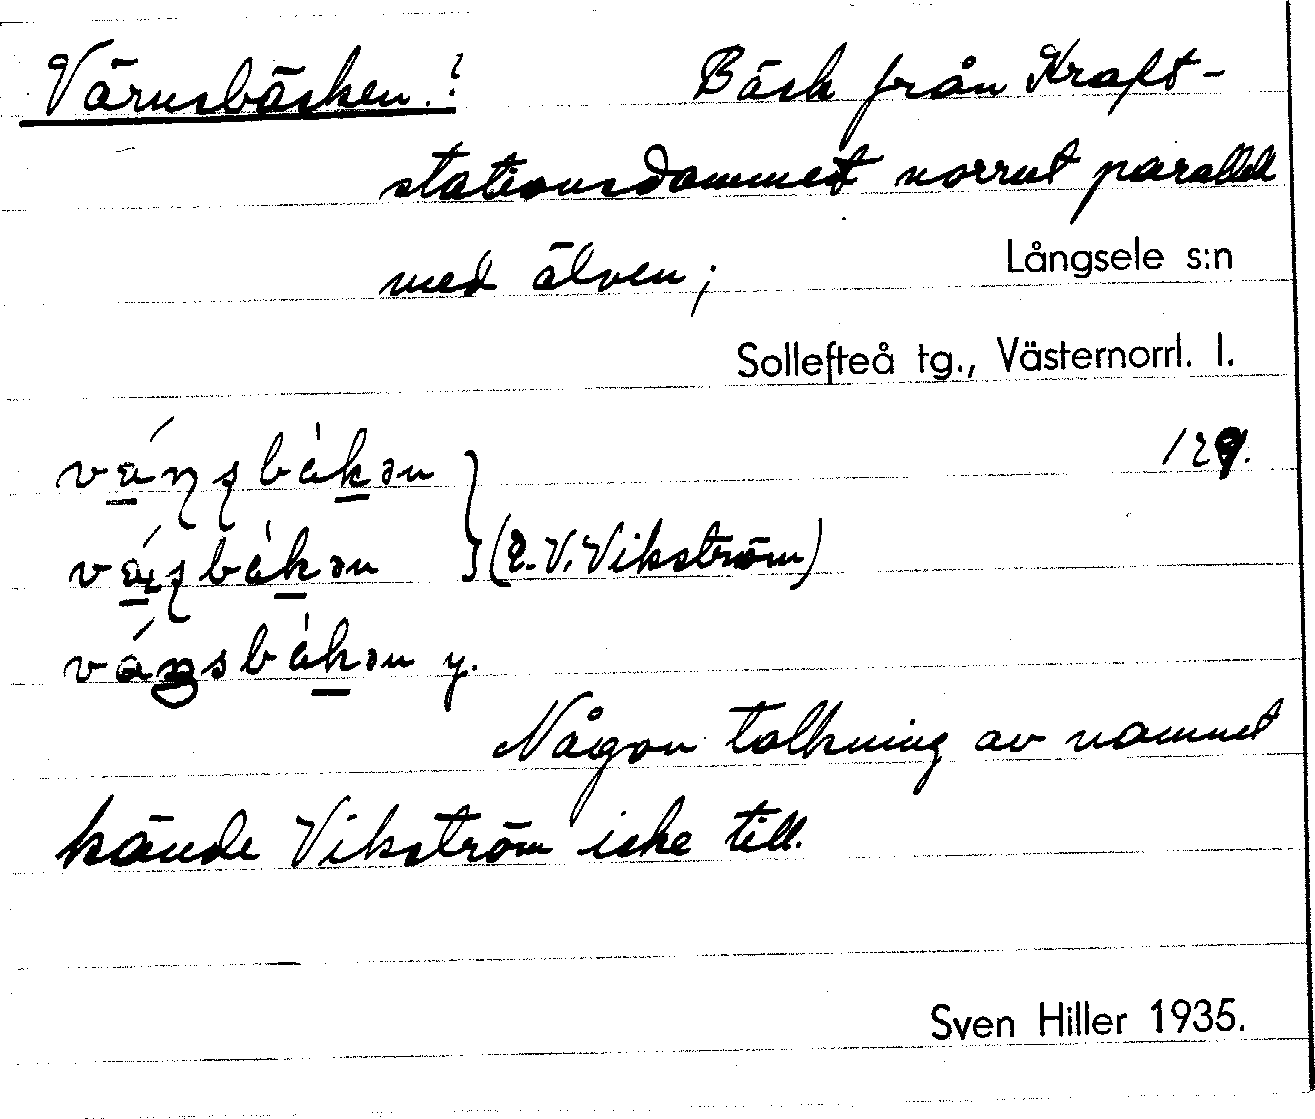 Värnsbäcken.? Bäck från Kraft-
stationsdammet norrut parallell
med älven;
Långsele s:n
Sollefteå tg., Västernorrl. l.
129.
(E.V. Vikström)
y.
Någon tolkning av namnet
kände Vikström icke till.
Sven Hiller 1935.